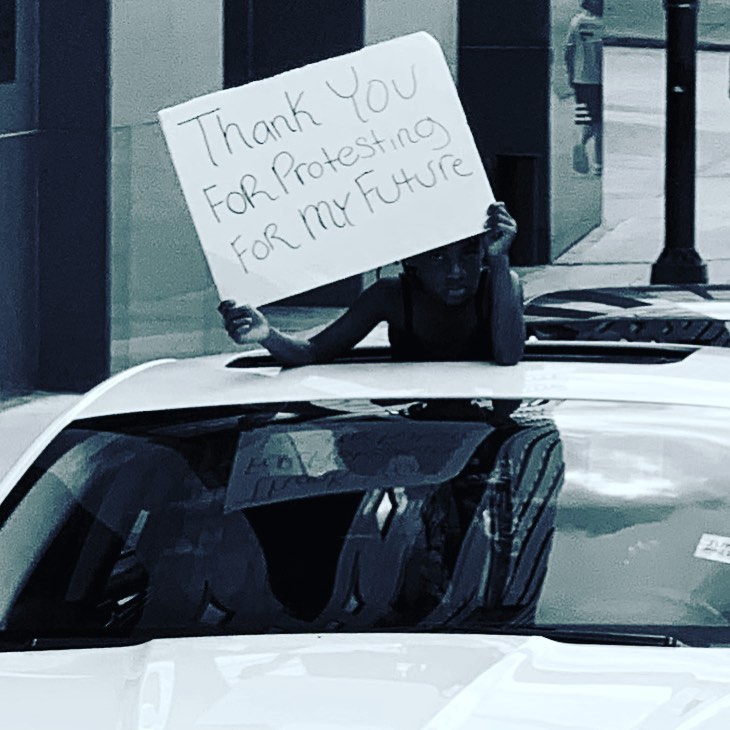 Thank You
FOR Protesting
FOR MY Future